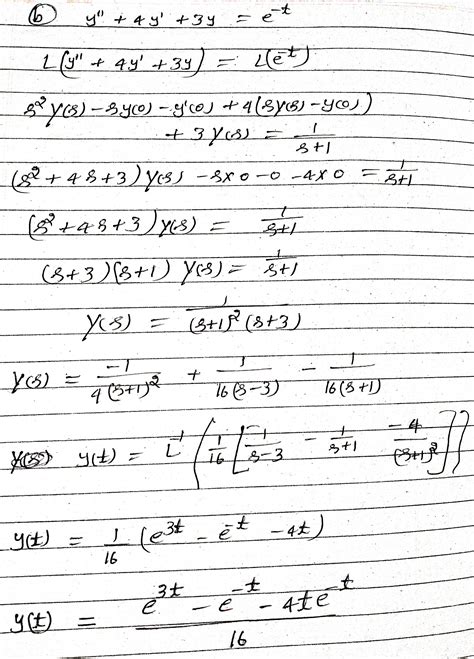 (b) y'' + 4y' + 3y = e^-t
L(y'' + 4y' + 3y) = L(e^-t)
s²Y(s) - sy(0) - y'(0) + 4(sY(s) - y(0))
+ 3Y(s) = 1/(s+1)
(s² + 4s + 3)Y(s) - s×0 - 0 - 4×0 = 1/(s+1)
(s² + 4s + 3)Y(s) = 1/(s+1)
(s+3)(s+1) Y(s) = 1/(s+1)
Y(s) = 1/((s+1)²(s+3))
Y(s) = -1/(4(s+1)²) + 1/(16(s-3)) - 1/(16(s+1))
y(t) = L^-1 (1/16 [1/(s-3) - 1/(s+1) -4/(s+1)²])
y(t) = 1/16 (e^3t - e^-t - 4t)
y(t) = (e^3t - e^-t - 4te^-t)/16